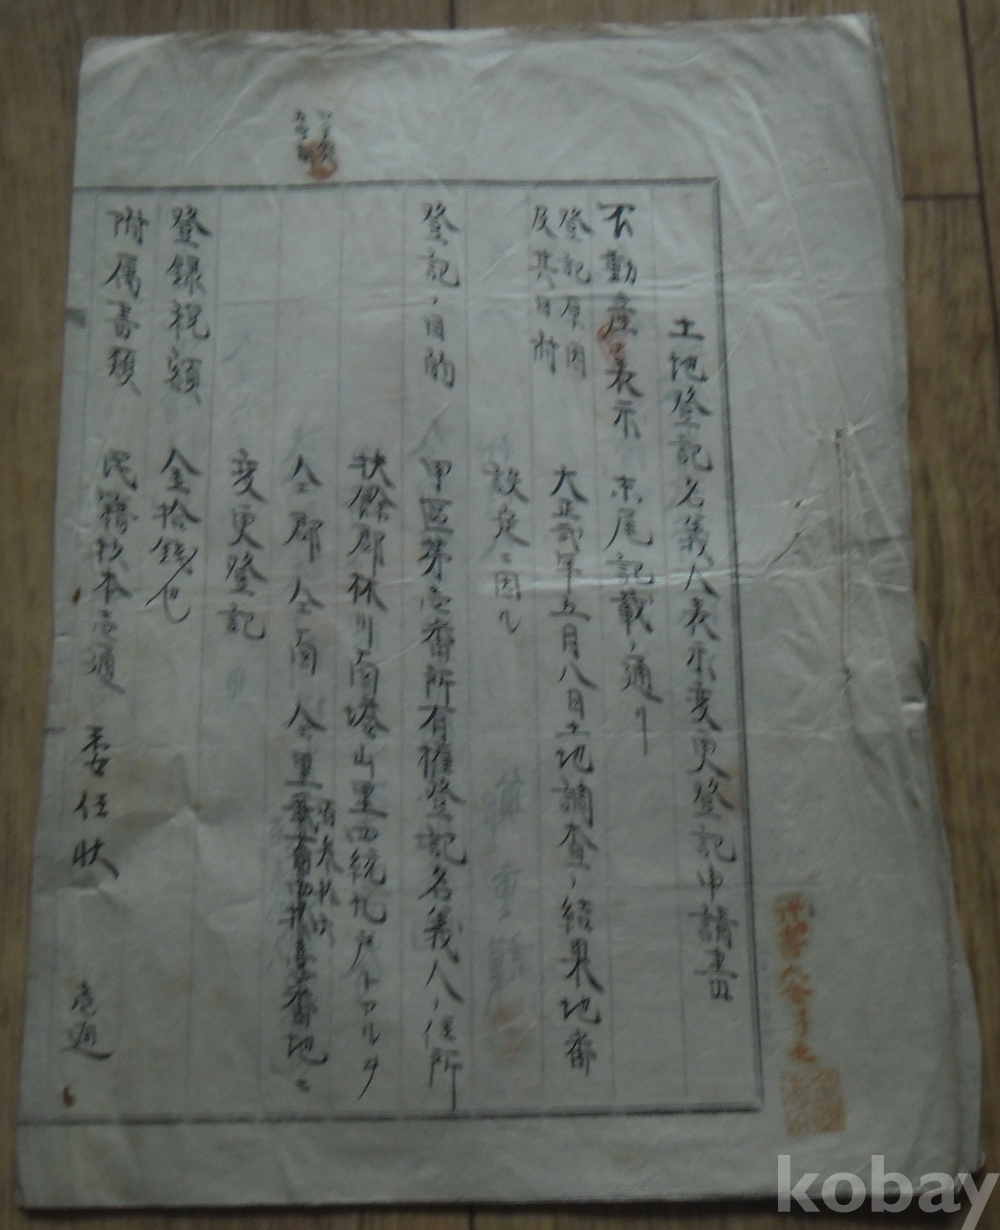 土地登記名義人表示変更登記申請書
不動産表示 末尾記載ノ通リ
登記原因
及其日附
大正貳年五月八日土地調査ノ結果地番
設定ニ因ル
登記ノ目的 甲區第壱番所有權登記名義人ノ住所
扶餘郡林川面塔山里四統九戸トアルヲ
仝郡仝面仝里
番地ニ
変更登記
登録税額 金拾銭也
附属書類 民籍抄本壱通 委任状 壱通
kobay